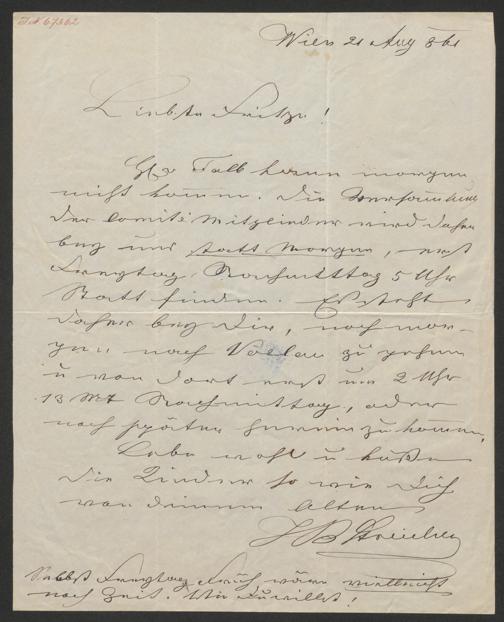 I.N. 67362
Wien 21 Aug 861
Liebste Fritze!
Hr Falb kann morgen
nicht kommen. Die Versammlung
der Comité Mitglieder wird daher
bey uns statt Morgen, erst
Freytag, Nachmittag 5 Uhr
Statt finden. Es steht
daher bey Dir, noch mor-
gen nach Vöslau zu gehen
u von dort erst um 2 Uhr
13 Mt Nachmittag, oder
noch später herein zu kommen.
Lebe wohl u küße
die Kinder so wie Dich
von deinem Alten
JB Streicher
Selbst Freytag Früh wäre vielleicht
noch Zeit. Wie Du willst!